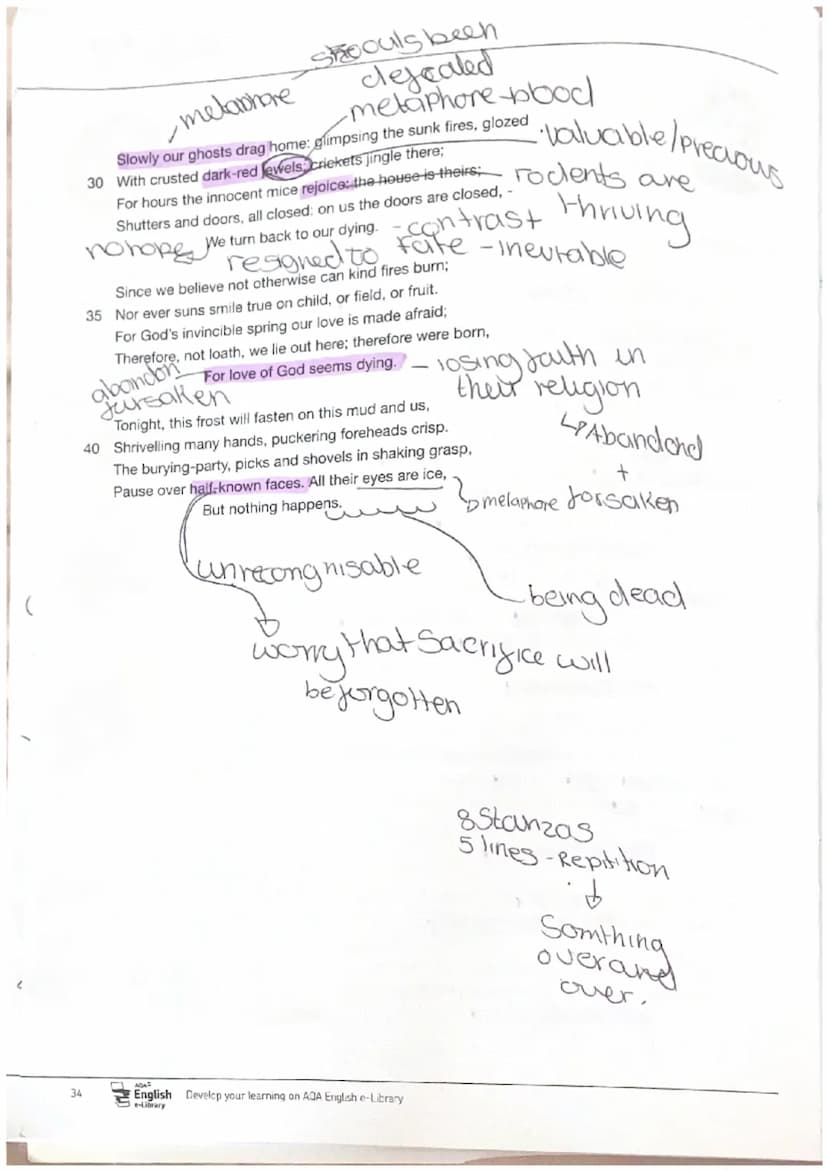 souls been
defealed
metaphore
metaphore-blood
Slowly our ghosts drag home: glimpsing the sunk fires, glozed
·valuable/precious
30 With crusted dark-red jewels; crickets jingle there;
For hours the innocent mice rejoice: the house is theirs;
rodents are
thriving
Shutters and doors, all closed: on us the doors are closed, -
no hope
We turn back to our dying.
- contrast
resigned to fate - inevitable
Since we believe not otherwise can kind fires burn;
35 Nor ever suns smile true on child, or field, or fruit.
For God's invincible spring our love is made afraid;
Therefore, not loath, we lie out here; therefore were born,
abandon
forsaken
For love of God seems dying.
- losing faith in
their religion
Tonight, this frost will fasten on this mud and us,
Abandoned
+
forsaken
40 Shrivelling many hands, puckering foreheads crisp.
The burying-party, picks and shovels in shaking grasp,
Pause over half-known faces. All their eyes are ice,
metaphore
But nothing happens.
unrecongnisable
being dead
worry that Sacrifice will
be forgotten
8 Stanzas
5 lines - Repitition
Somthing
over and
over.
34
AQA
English
e-Library
Develop your learning on AQA English e-Library